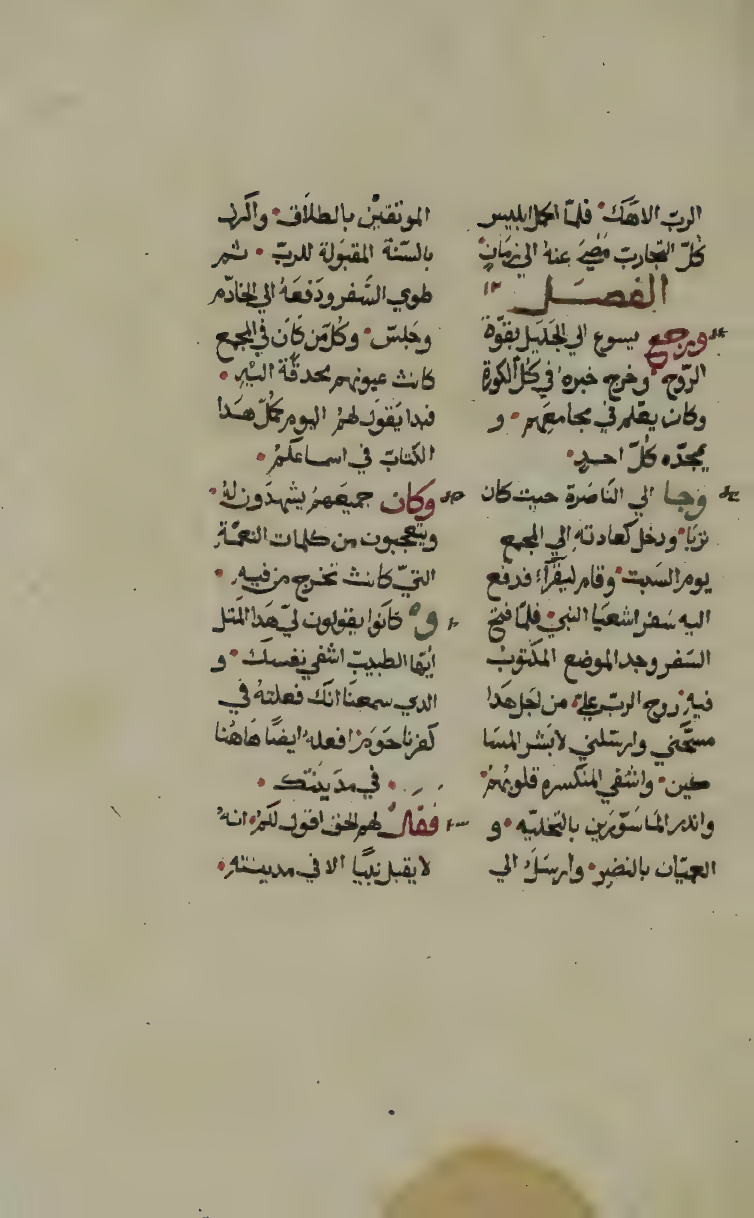 الرب الاهك فلما اكمل ابليس
كل التجارب مضي عنه الي زمان
الفصل ١٢
ورجع يسوع الي الجليل بقوة
الروح وخرج خبره في كل الكورة
وكان يعلم في مجامعهم و
يمجده كل احد
وجا الي الناصرة حيث كان
تربا ودخل كعادته الي المجمع
يوم السبت وقام ليقرا فدفع
اليه سفر اشعيا النبي فلما فتح
السفر وجد الموضع المكتوب
فيه روح الرب علي من اجل هدا
مسحني وارسلني لابشر المسا
كين واشفي المنكسره قلوبهم
واندر الماسورين بالتخليه و
العميان بالنضر وارسل الي
الموثقين بالطلاق واكرز
بالسنة المقبولة للرب ثم
طوي السفر ودفعه الي الخادم
وجلس وكل من كان في المجمع
كانت عيونهم محدقة اليه
فبدا يقول لهم اليوم كمل هدا
الكتاب في اسماعكم
وكان جميعهم يشهدون له
ويتعجبون من كلمات النعمة
التي كانت تخرج من فيه
و كانوا يقولون لي هدا المتل
ايها الطبيب اشفي نفسك و
الدي سمعنا انك فعلته في
كفرناحوم افعله ايضا هاهنا
في مدينتك
فقال لهم الحق اقول لكم انه
لا يقبل نبيا الا في مدينته